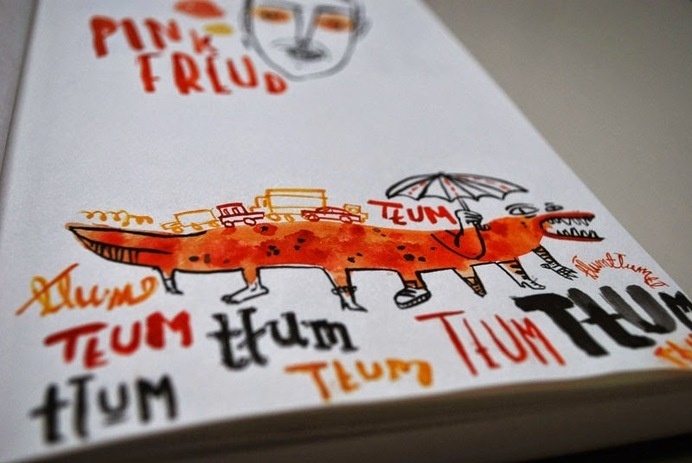 PINK
FREUD
TŁUM
tłumtłum
tłum
TŁUM tłum TŁUM TŁUM
tłUM TŁUM